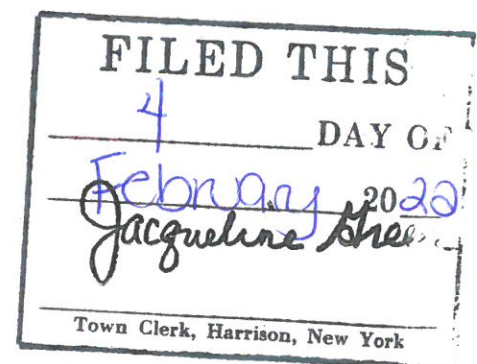 FILED THIS
4 DAY OF
February 2022
Jacqueline Gree
Town Clerk, Harrison, New York